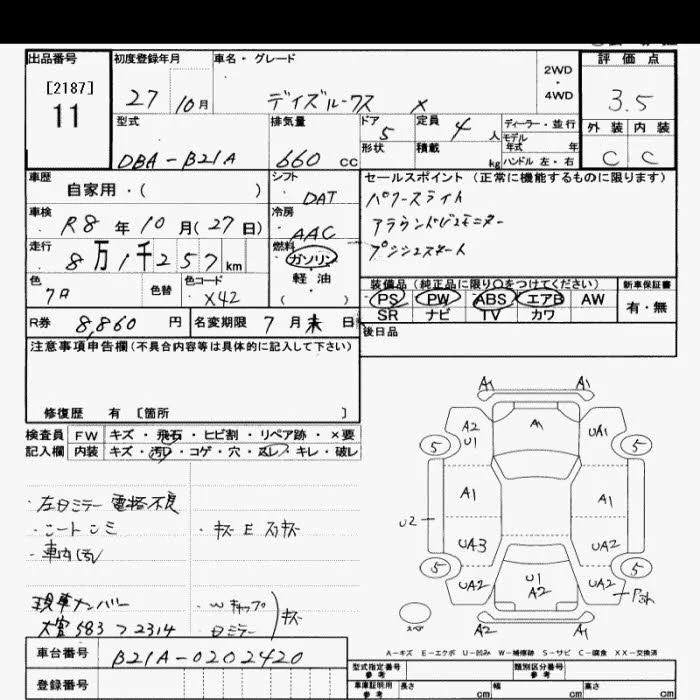 出品番号
[2187]
11
初度登録年月
27 10月
車名・グレード
デイズルークス X
2WD
・
4WD
評価点
3.5
外装 内装
C C
型式
DBA-B21A
排気量
660 cc
ドア
5
形状
定員
4 人
積載
kg
ディーラー・並行
モデル
年式 年
ハンドル 左・右
車歴
自家用・( )
シフト
DAT
車検
R8年10月(27日)
冷房
AAC
走行
8万1千257km
燃料
ガソリン
軽油
( )
色
色替
色コード
X42
セールスポイント(正常に機能するものに限ります)
パワースライド
アラウンドビューモニター
プッシュスタート
装備品(純正品に限り○をつけてください)
PS PW ABS エアB AW
SR ナビ TV カワ
新車保証書
有・無
R券 8,860円
名変期限 7月末日
後日品
注意事項申告欄(不具合内容等は具体的に記入して下さい)
修復歴 有 [箇所 ]
検査員 FW キズ・飛石・ヒビ割・リペア跡・×要
記入欄 内装 キズ・汚れ・コゲ・穴・スレ・キレ・破レ
・左日ミラー 電格不良
・シートシミ
・車内汚レ
・キズ E スリキズ
現車ナンバー
583 2314
・Wキャップ
日ミラー
キズ
車台番号
B21A-0202420
登録番号
A1 A1
A2
U1
A1
UA1
5 5
A1 A1
U2
UA3 UA2
5 5
UA2
U1
A2
UA2
A2 A1
A-キズ E-エクボ U-凹み W-補修跡 S-サビ C-腐食 XX-交換済
型式指定番号
参考
類別区分番号
参考
車庫証明用
参考
長さ cm
幅 cm
高さ cm